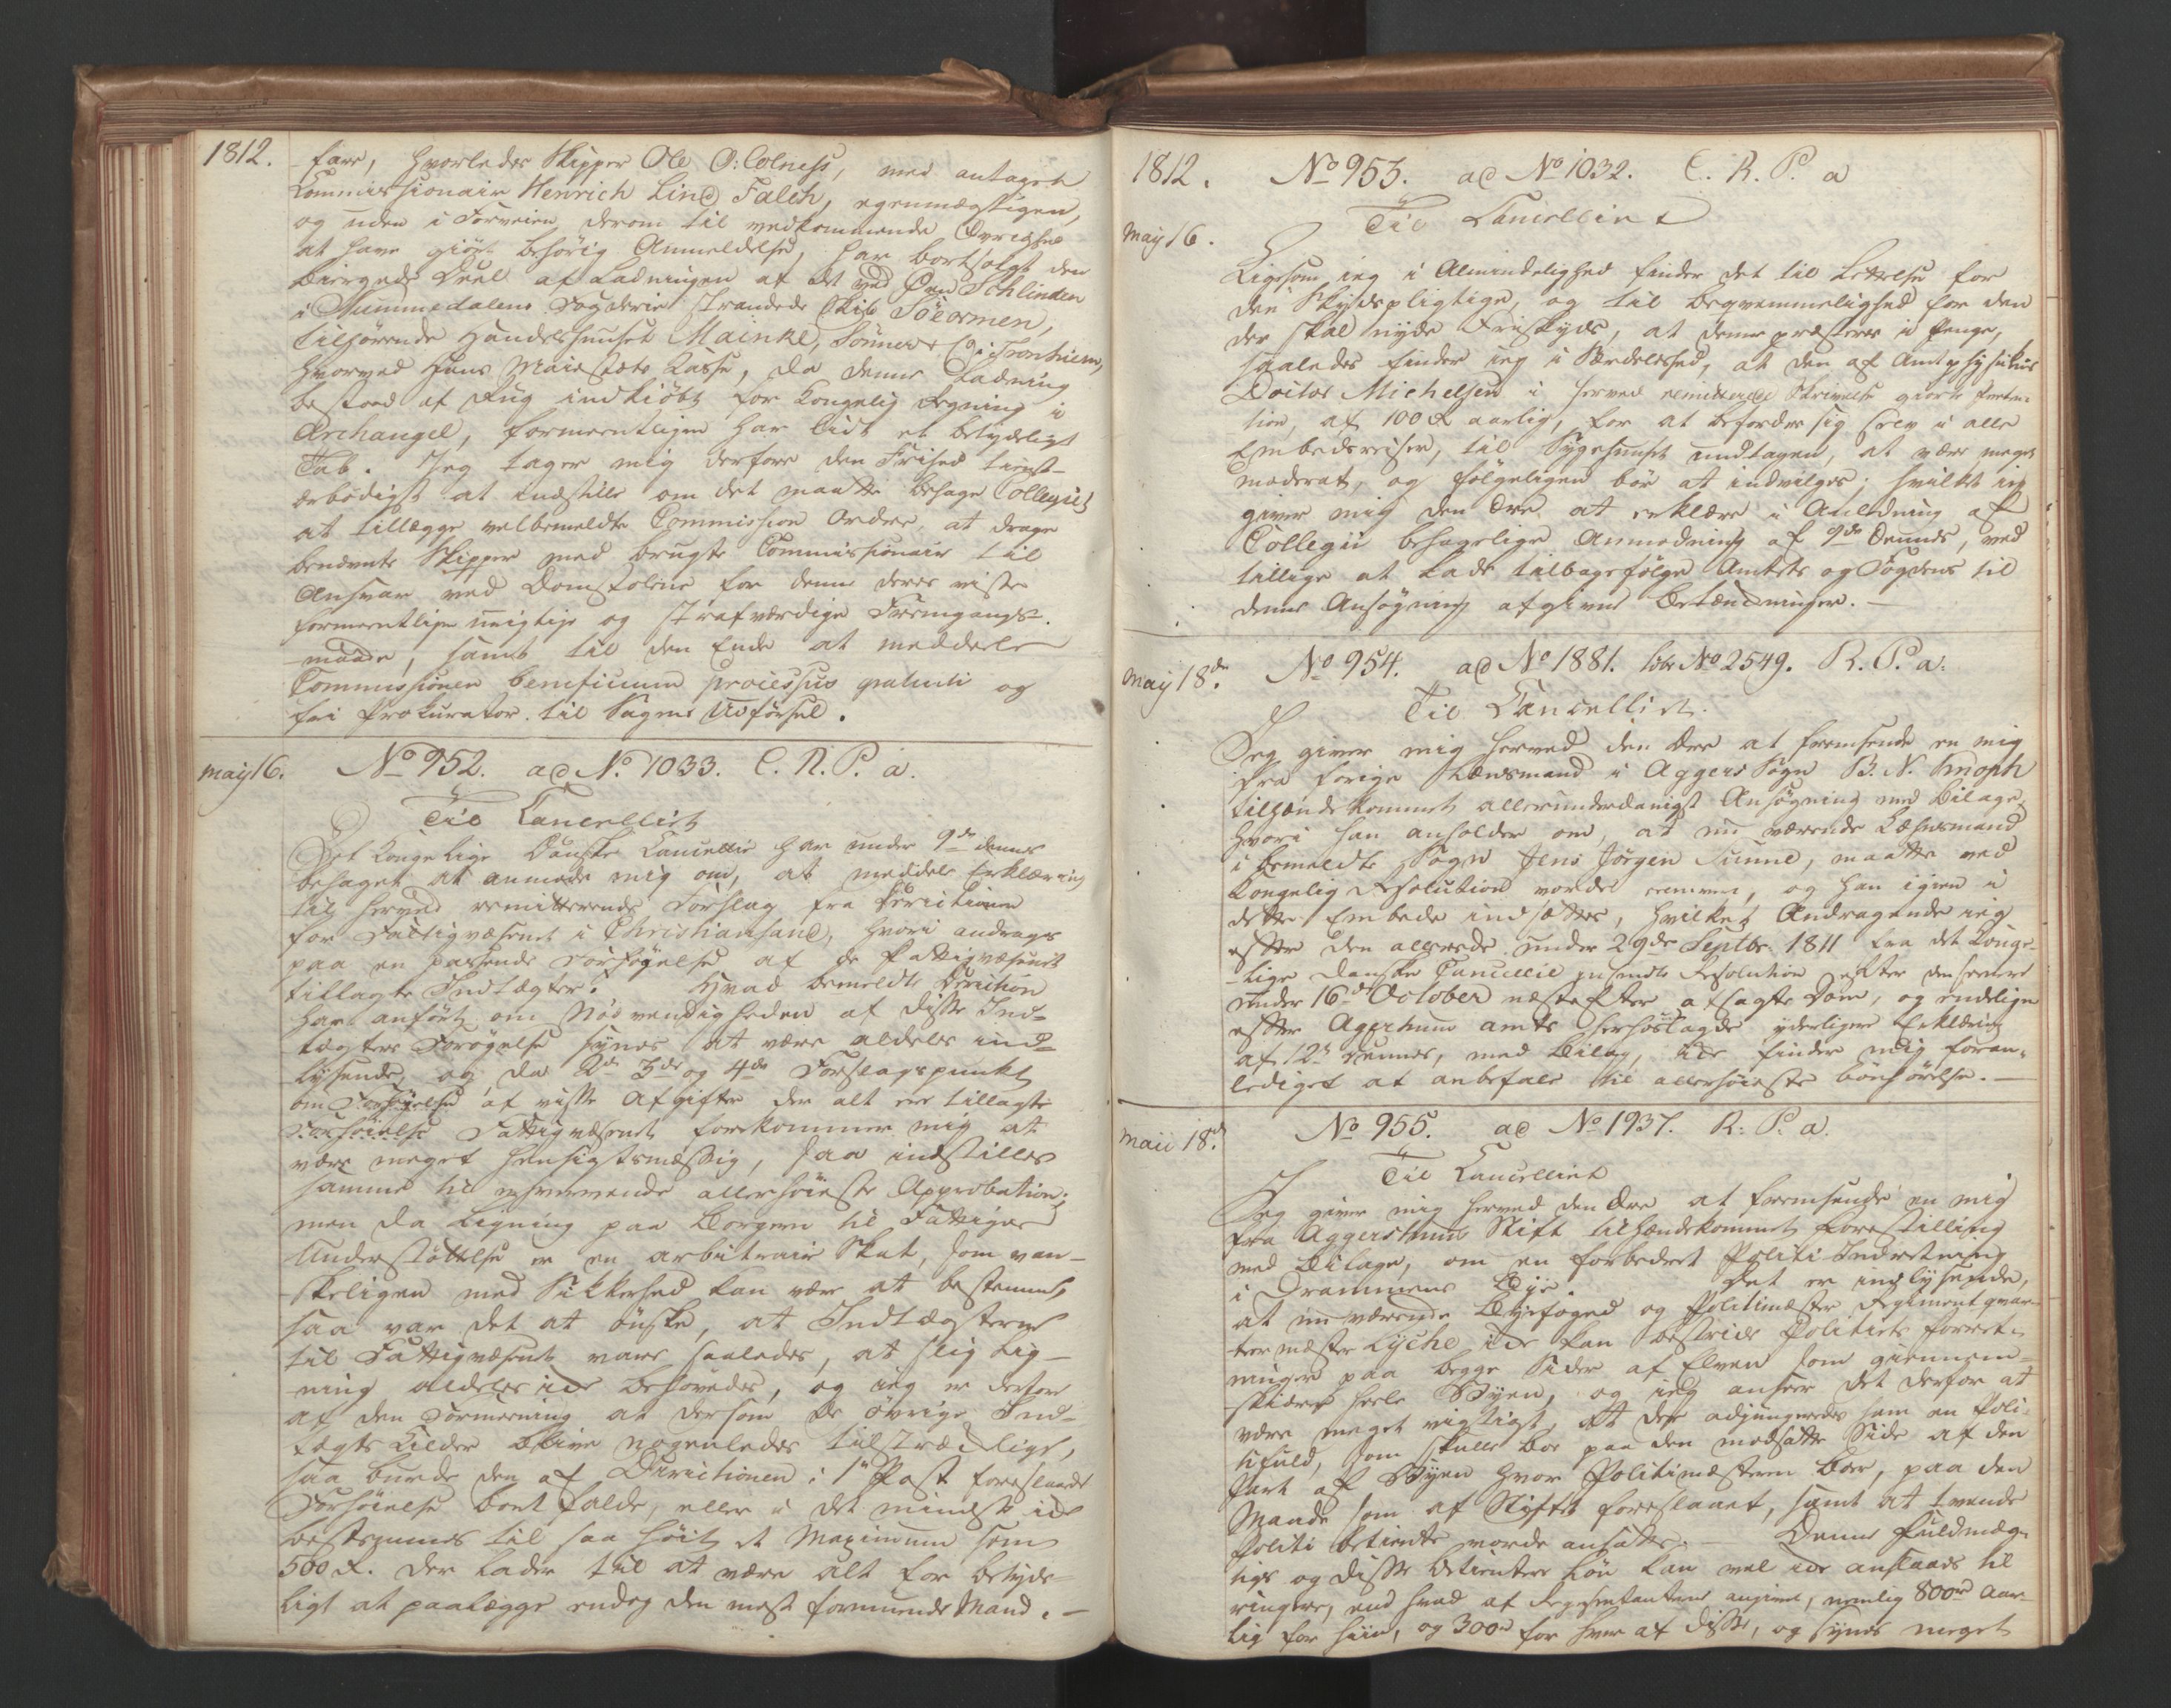 1812.
fare, hvorledes Skipper Ole O: Colness, med antagen
Commissionair Henrich Lind Falch, egenmægtigen,
og uden i Forveien derom til vedkommende Øvrighed
at have giört behörig Anmeldelse, har bortsolgt den
biergede Deel af Ladningen af det ved Øen Schlinden
i Nummedalens Fogderie strandede Skib Söeormen,
tilhørende Handelshuuset Mainke, Sönner & Co. i Tronhiem,
hvorved Hans Majestæts Kasse, da denne Ladning
bestaaed af Rug indkiöbt for Kongelig Regning i
Archangel, formeentligen har lidt et betydeligt
Tab. Jeg tager mig derfore den Frihed tienst-
ærbödigst at indstille om det maatte behage Collegiet
at tillægge velbemeldte Commission Ordre, at drage
benævnte Skipper med brugte Commissionair til
Ansvar ved Domstolene for denne deres viste
formeentlige urigtige og strafværdige Fremgangs-
maade, samt til den Ende at meddele
Commissionen beneficium processus gratuiti og
fri Prokurator til Sagens Udførsel.
may 16. No 952. ad No. 1033. C. R. P. a.
Til Cancelliet
Det Kongelige Danske Cancellie har under 9de dennes
behaget at anmode mig om, at meddele Erklæring
til herved remitterende Forslag fra Directionen
for Fattigvæsenet i Christiansand, hvori andrages
paa en passende Forhöyelse af de Fattigvæsenet
tillagte Indtægter. Hvad bemeldte Direction
har anfört om Nödvendigheden af disse Ind-
tægters Forögelse synes at være aldeles ind-
lysende, og da 2de 3de og 4de Forslagspunkt
om Forhöyelse af visse Afgifter der alt ere tillagte
Fattigvæsenet forekommer mig at
være meget hensigtsmæssig, saa indstilles
samme til allerhöieste Approbation;
men da Ligning paa Borgerne til Fattiges
Understöttelse er en arbitrair Skat, som van-
skeligen med Sikkerhed kan være at bestemme,
saa var det at önske, at Indtægterne
til Fattigvæsenet vare saaledes, at slig Lig-
ning aldeles icke behövedes, og ieg er derfore
af den Formening at dersom de övrige Ind-
tægts Kilder blive nogenledes tilstrækkelige,
saa burde den af Directionen i 1te Post foreslaaede
Forhöielse bortfalde, eller i det mindste icke
bestemmes til saa höit et Maximum som
500 R. der lader til at være alt for betyde-
ligt at paalægge endog den mest formuende Mand. –
1812. No 953. ad No 1032. C. R. P. a
Til Cancelliet
may 16.
Ligesom ieg i Almindelighed finder det til Lettelse for
den Skydspligtige, og til beqvemmelighed for den
der skal nyde Friskyds, at denne præsteres i Penge,
saaledes finder ieg i Særdeleshed, at den af Amtsphysicus
Doctor Michelsen i herved remitterede Skrivelse giorte Præten-
tion, af 100 R aarlig, for at befordre sig selv i alle
Embedsreiser, til Sygehuuset undtagen, at være meget
moderat, og følgeligen bör at indvilges; hvilket ieg
giver mig den Ære at erklære i Anledning af
Collegii behagelige Anmodning af 9de Dennes, ved
tillige at lade tilbagefölge Amtets og Fogdens til
denne Ansögning afgivne Betænkninger. –
may 18de. No 954. ad No 1881. No 2549. R. P. a.
Til Cancelliet.
Jeg giver mig herved den Ære at fremsende en mig
fra forige Lænsmand i Aggers Sogn B. N. Knoph
tilhændekommet allerunderdanigst Ansögning med Bilage,
hvori han anholder om, at nu værende Lænsmand
i bemeldte Sogn Jens Jörgen Sunne, maatte ved
Kongelig Resolution vorde removeret, og han igien i
dette Embede indsættes, hvilket Andragende ieg
efter den allerede under 29de Septbr. 1811 fra det Konge-
lige Danske Cancellie Resolution efter den senere
under 16de October næstefter afsagte Dom, og endelige
efter Agerhuus amts herhoslagde yderligere Erklæring
af 12te dennes, med Bilag, icke finder mig foran-
lediget at anbefale til allerhöieste bönhörelse. –
maii 18de. No 955. ad No 1937. R. P. a.
Til Cancelliet
Jeg giver mig herved den Ære at fremsende en mig
fra Aggershuus Stift tilhændekommet Forestilling
med Bilage, om en forbedret Politi-Indretning
i Drammens Bye. Det er indlysende,
at nu værende Byefoged og Politimester Regimentqvar-
teermester Lyche icke kan bestride Politiets Forret-
ninger paa begge Sider af Elven som giennem-
skiærer heele Byen, og ieg anseer det derfor at
være meget vigtigt, at der adjungeredes ham en Poli-
tifuld, som skulle boe paa den modsatte Side af den
Part af Byen hvor Politimesteren boer, paa den
Maade som af Stiftet foreslaaet, samt at tvende
Politi betiente vorde ansatte. – Denne Fuldmæg-
tigs og disse betienteres Lön kan vel icke ansaaes til
ringere, end hvad af Repræsentanterne angivet, nemlig 800rd aar-
lig for hiin, og 300rd for hver af disse, og synes meget